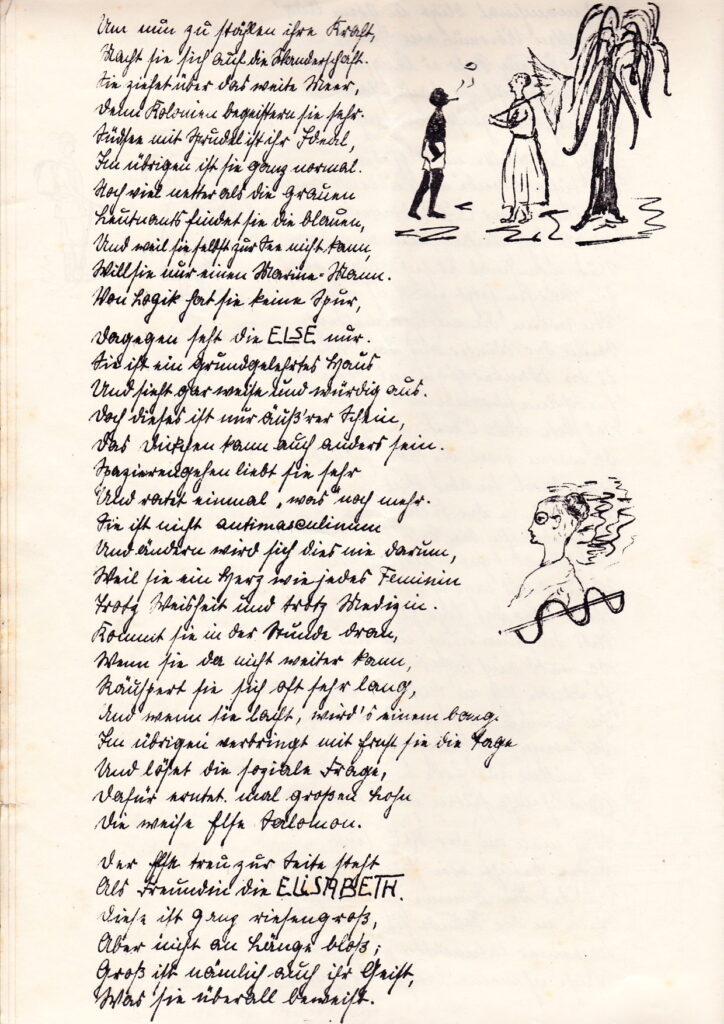 Um nun zu stählen ihre Kraft,
Macht sie sich auf die Wanderschaft.
Sie ziehet über das weite Meer,
Denn Kolonien begeistern sie sehr.
Südsee mit Strudel ist ihr Ideal,
Im übrigen ist sie ganz normal.
Noch viel netter als die grauen
Leutnants findet sie die blauen,
Und weil sie selbst zur See nicht kann,
Will sie nur einen Marine-Mann.
Von Logik hat sie keine Spur,
Dagegen seht die ELSE nur.
Sie ist ein grundgelehrtes Haus
Und sieht gar weise und würdig aus.
Doch dieses ist nur äuß'rer Schein,
Das Dickchen kann auch anders sein.
Spazierengehen liebt sie sehr
Und ratet einmal „was" noch mehr.
Sie ist nicht antimasculinum
Und ändern wird sich dies nie darum,
Weil sie ein Herz wie jedes Feminin
Trotz Weisheit und trotz Medizin.
Kommt sie in der Stunde dran,
Wenn sie da nicht weiter kann,
Räuspert sie sich oft sehr lang,
Und wenn sie lacht, wird's einem bang.
Im übrigen verbringt mit Ernst sie die Tage
Und löset die soziale Frage,
Dafür erntet mal großen Lohn
Die weise Else Salomon.
Der Else treu zur Seite steht
Als Freundin die ELISABETH.
Diese ist ganz riesengroß,
Aber nicht an Länge bloß;
Groß ist nämlich auch ihr Geist,
Was sie überall beweist.